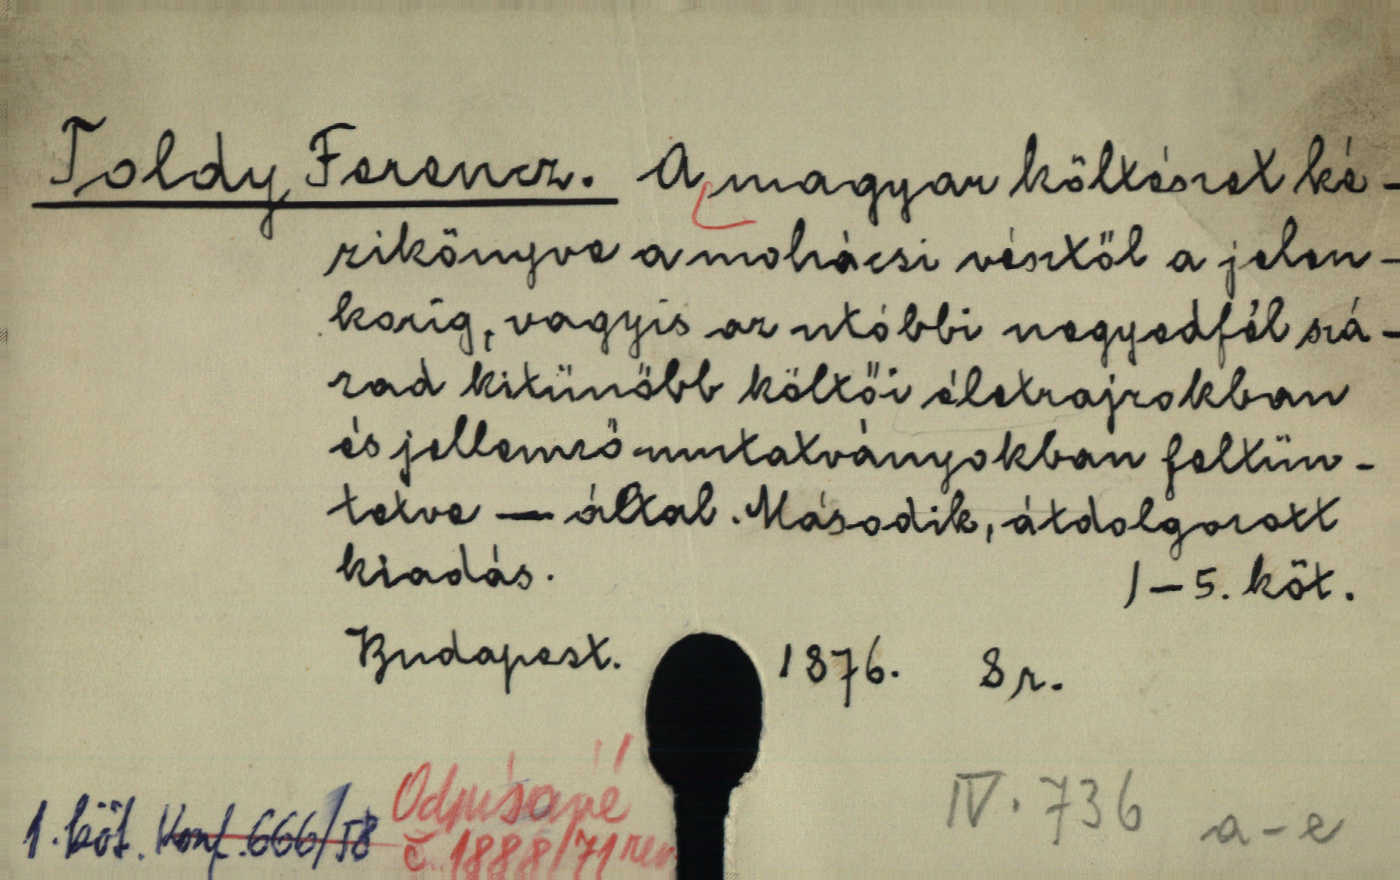 Toldy Ferencz. A magyar költészet ké-
zikönyve a mohácsi vésztöl a jelen-
korig, vagyis az utóbbi negyedfél szá-
zad kitünöbb költöi életrajzokban
és jellemzö mutatványokban feltün-
tetve — által. Második, átdolgozott
kiadás.
1-5. köt.
Budapest. 1876. 8 r.
1. köt. Konf. 666/58
Odpísané!
č. 1888/71 rev
IV. 736 a-e